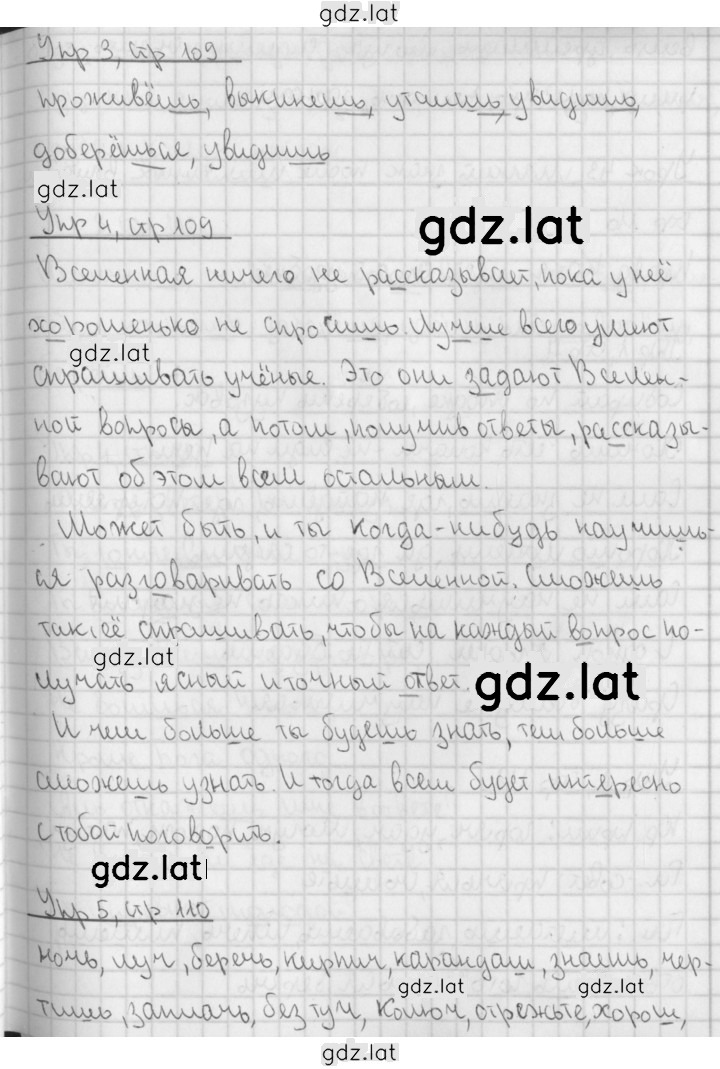 gdz.lat
Упр 3, стр 109
проживёшь, выкинешь, утаишь, увидишь,
доберёшься, увидишь
gdz.lat
Упр 4, стр 109
gdz.lat
Вселенная ничего не рассказывает, пока у неё
хорошенько не спросишь. Лучше всего умеют
gdz.lat
спрашивать учёные. Это они задают Вселен-
ной вопросы, а потом, получив ответы, рассказы-
вают об этом всем остальным.
Может быть, и ты когда-нибудь научишь-
ся разговаривать со Вселенной. Сможешь
так её спрашивать, чтобы на каждый вопрос по-
gdz.lat
лучать ясный и точный ответ.
gdz.lat
И чем больше ты будешь знать, тем больше
сможешь узнать. И тогда всем будет интересно
с тобой поговорить.
gdz.lat
Упр 5, стр 110
ночь, луч, беречь, кирпич, карандаш, знаешь, чер-
gdz.lat gdz.lat
тишь, заплачь, без туч, колюч, отрежьте, хорош,
gdz.lat